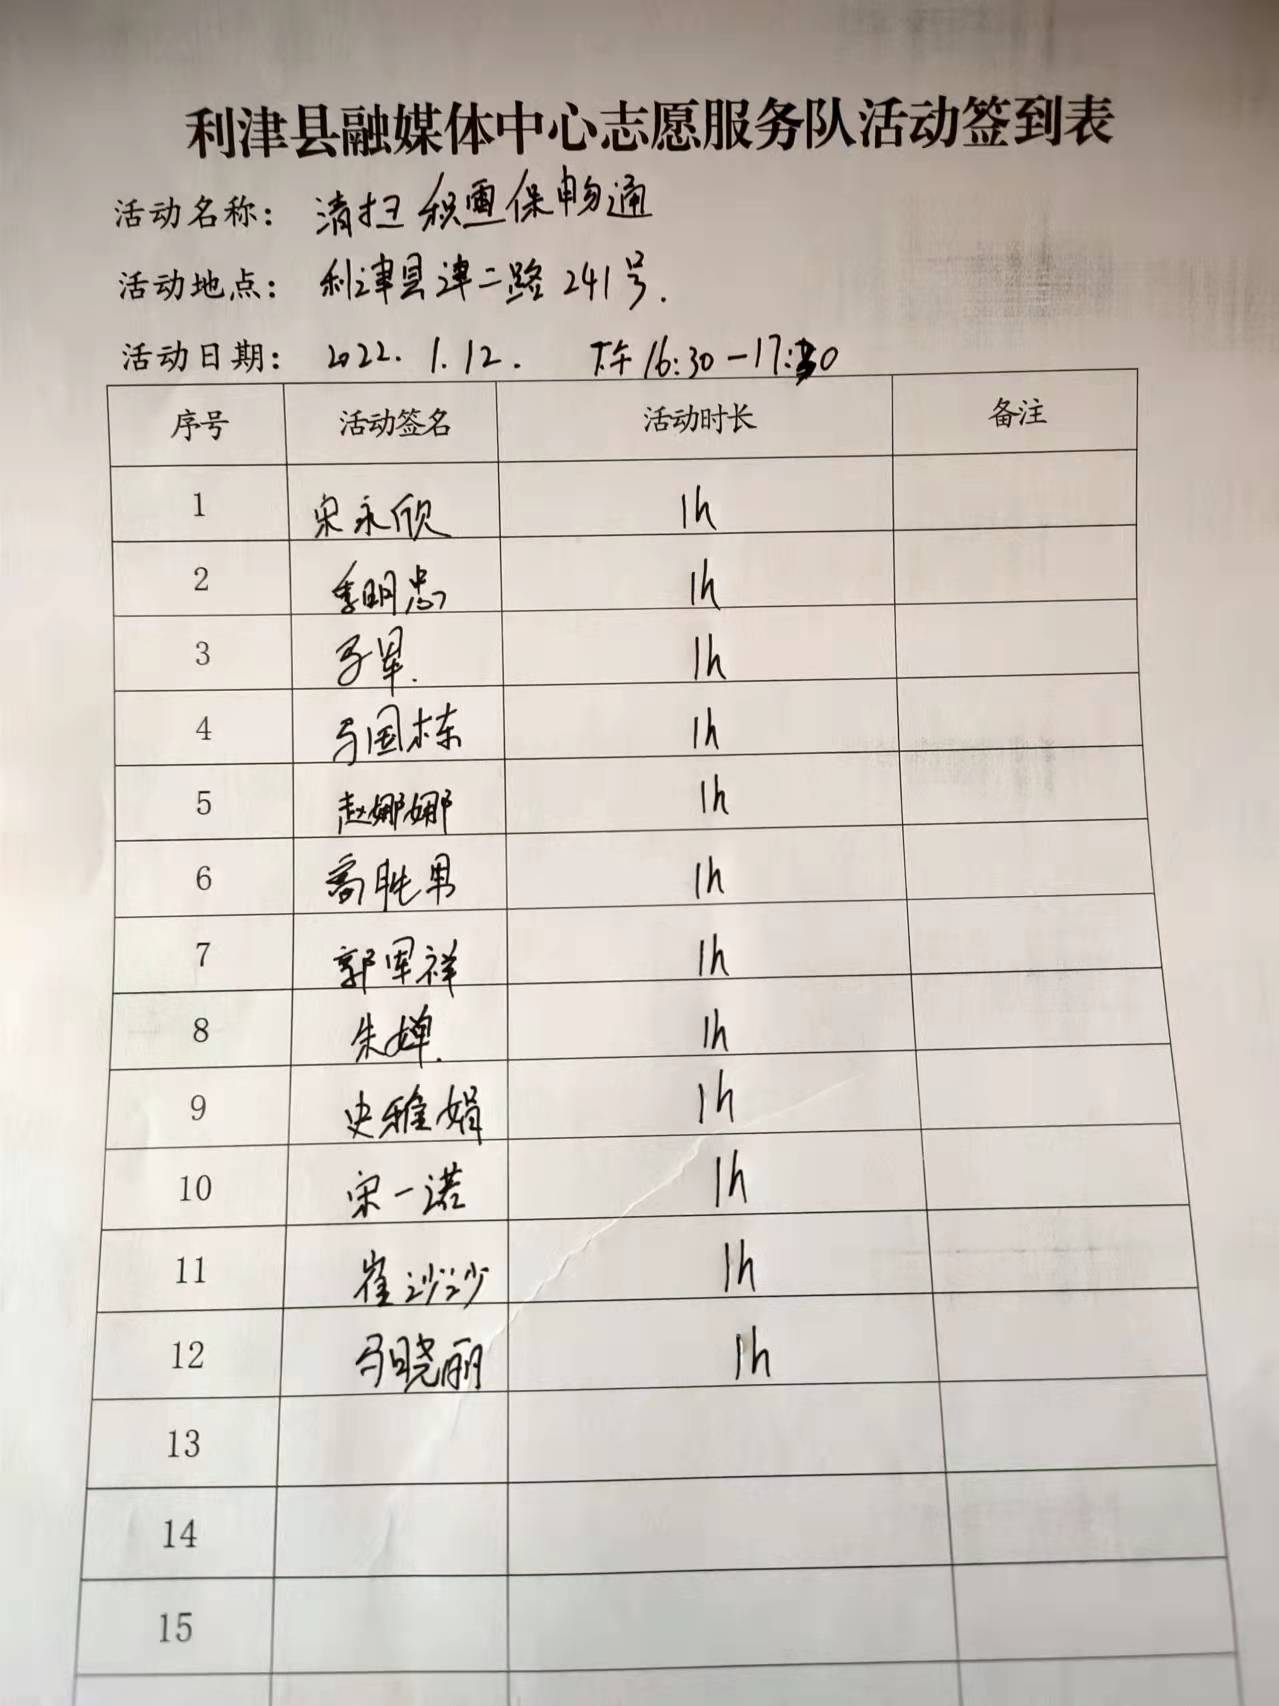 利津县融媒体中心志愿服务队活动签到表
活动名称: 清扫积雪保畅通
活动地点: 利津县津二路241号.
活动日期: 2022.1.12. 下午16:30-17:30
序号 活动签名 活动时长 备注
1 宋永欣 1h
2 李明忠 1h
3 1h
4 马国栋 1h
5 赵娜娜 1h
6 高胜男 1h
7 郭军祥 1h
8 朱婵. 1h
9 史雅娟 1h
10 宋一诺 1h
11 崔沙沙 1h
12 马晓丽 1h
13
14
15